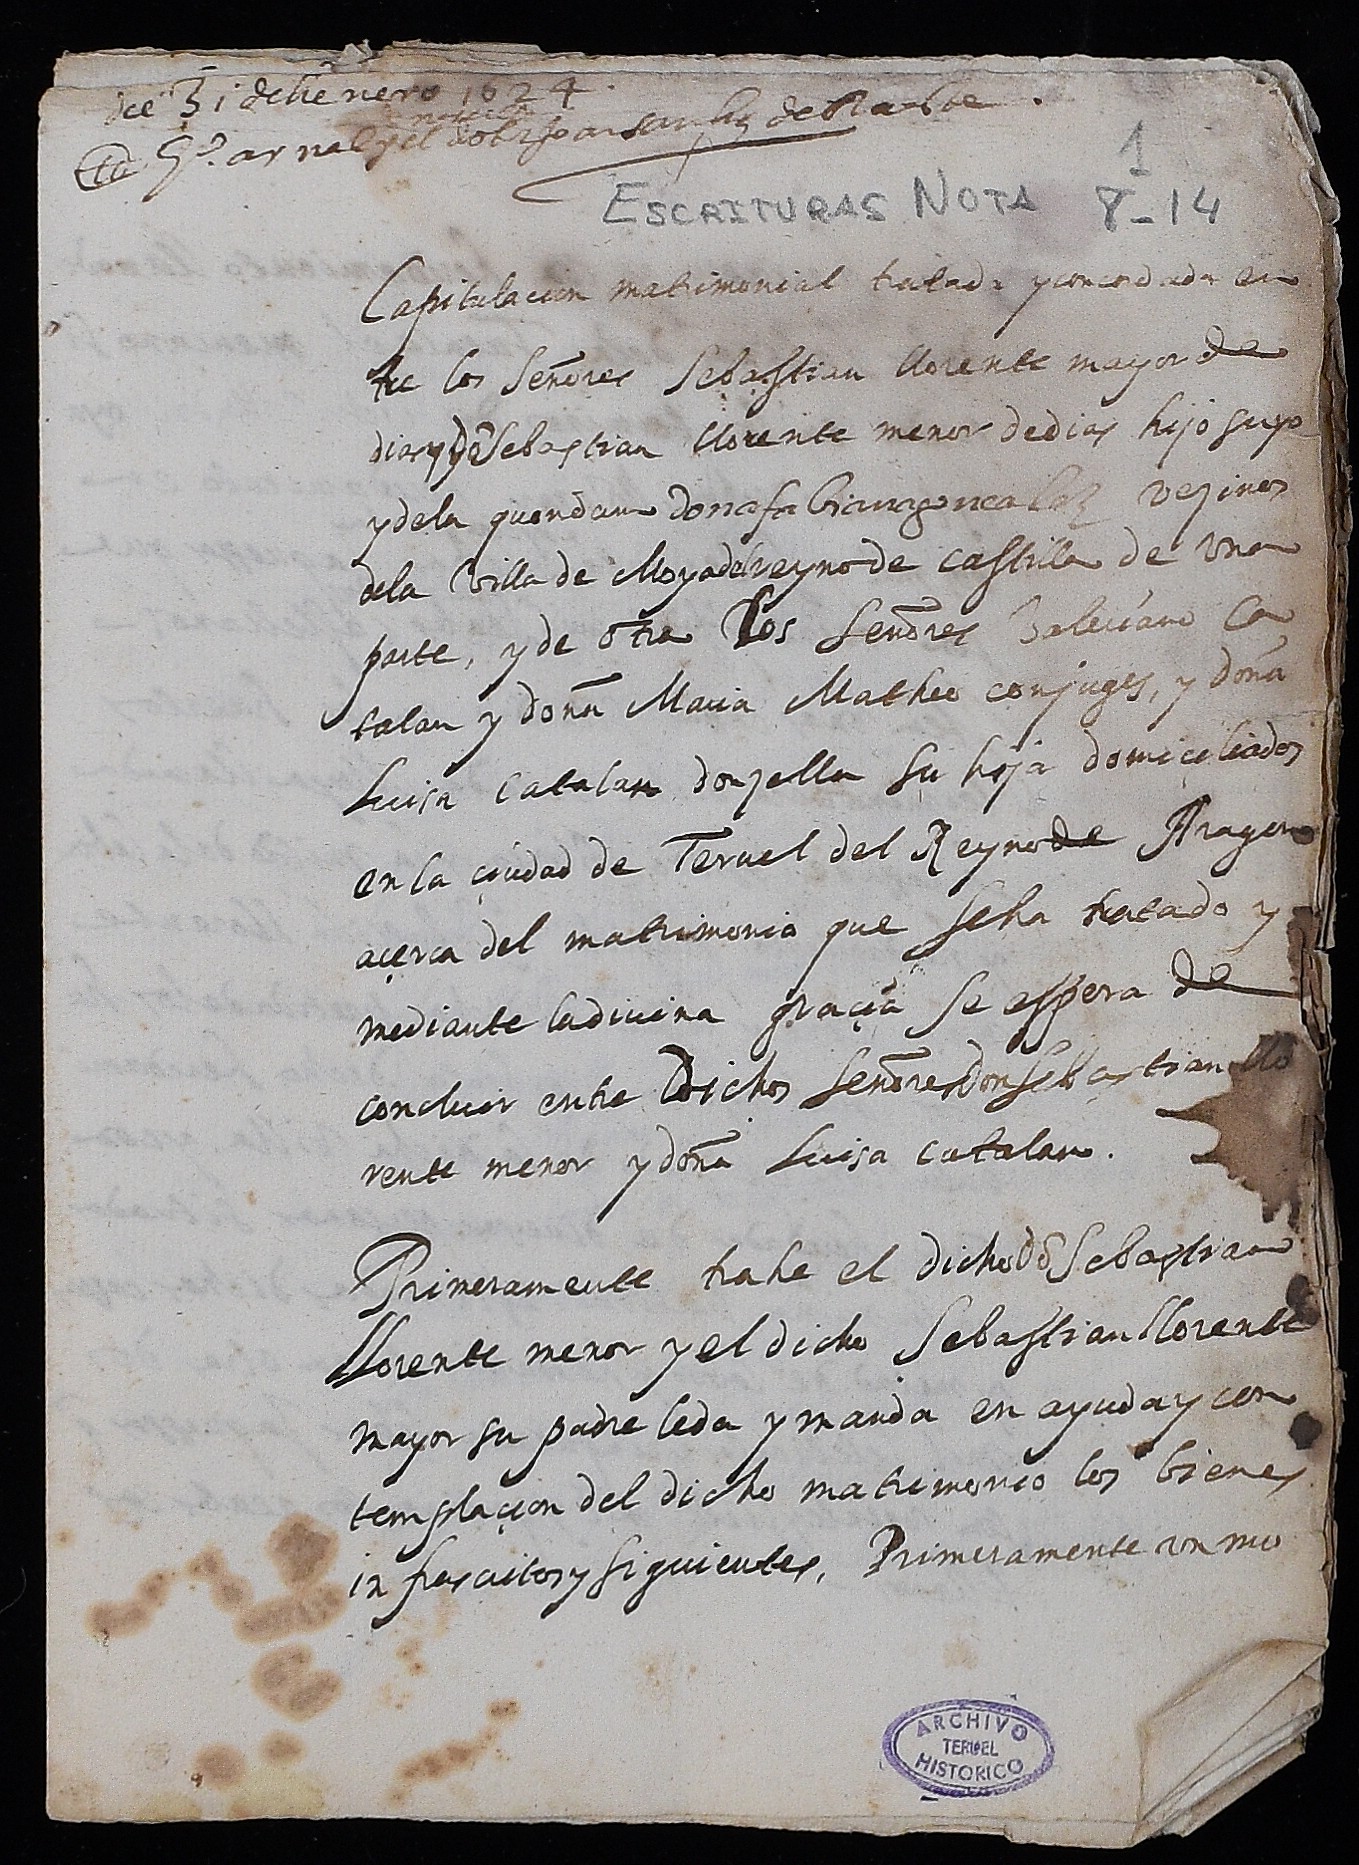 die 31 del henero 1624
tes Gil arnal y el
1
ESCRITURAS NOTA 8-14
Capitulacion matrimonial tratada y concordada en
tre los Señores Sebastian llorente mayor de
dias y Dō Sebastian llorente menor de dias hijo suyo
y de la quondam dona fabiana gonealez vezinos
de la Villa de Moya del reyno de castilla de vna
parte, y de otra Los Señores Valeriano Ca
talan y doña Maria Matheo conjuges, y doña
Luisa Catalan donzella su hija domiciliados
en la çiudad de Teruel del Reyno de Aragon
açerca del matrimonio que se ha tratado y
mediante la diuina graçia se espera de
concluir entre Dichos Señores don Sebastian llo
rente menor y doña Luisa catalan.
Primeramente trahe el dicho Dō Sebastian
llorente menor y el dicho Sebastian llorente
mayor su padre le da y manda en ayuda y con
templaçion del dicho matrimonio los bienes
infrascritos y siguientes, Primeramente vn mo
ARCHIVO
TERUEL
HISTORICO